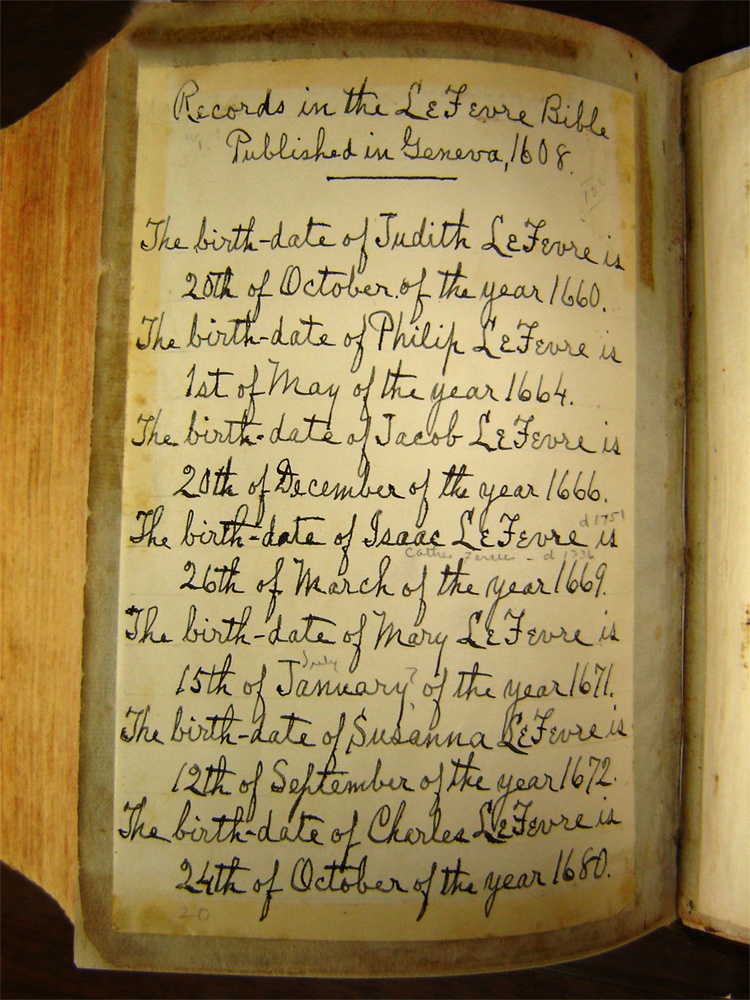 Records in the LeFevre Bible
Published in Geneva, 1608.
The birth-date of Judith LeFevre is
20th of October of the year 1660.
The birth-date of Philip LeFevre is
1st of May of the year 1664.
The birth-date of Jacob LeFevre is
20th of December of the year 1666.
d 1751
The birth-date of Isaac LeFevre is
Cathe. Ferree - d 1736
26th of March of the year 1669.
The birth-date of Mary LeFevre is
July
15th of January? of the year 1671.
The birth-date of Susanna LeFevre is
12th of September of the year 1672.
The birth-date of Charles LeFevre is
24th of October of the year 1680.
20